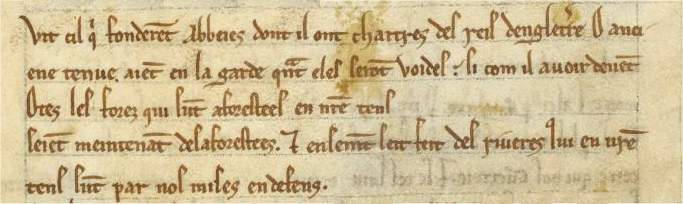 Vit cil qͥ fonderẽt Abbeies dont il ont chartres del reis dengletr̃e O anci-
ene tenue. aiẽt en la garde qñt eles serõt voides: si com il avoir devẽt
Otes les forez qui sũt aforestees en nr̃e tens
seiẽt meintenãt delaforestees. ⁊ ensemẽt seit feit des rivieres qͥ sũt en nr̃e
tens sũt par nos mises endefens.